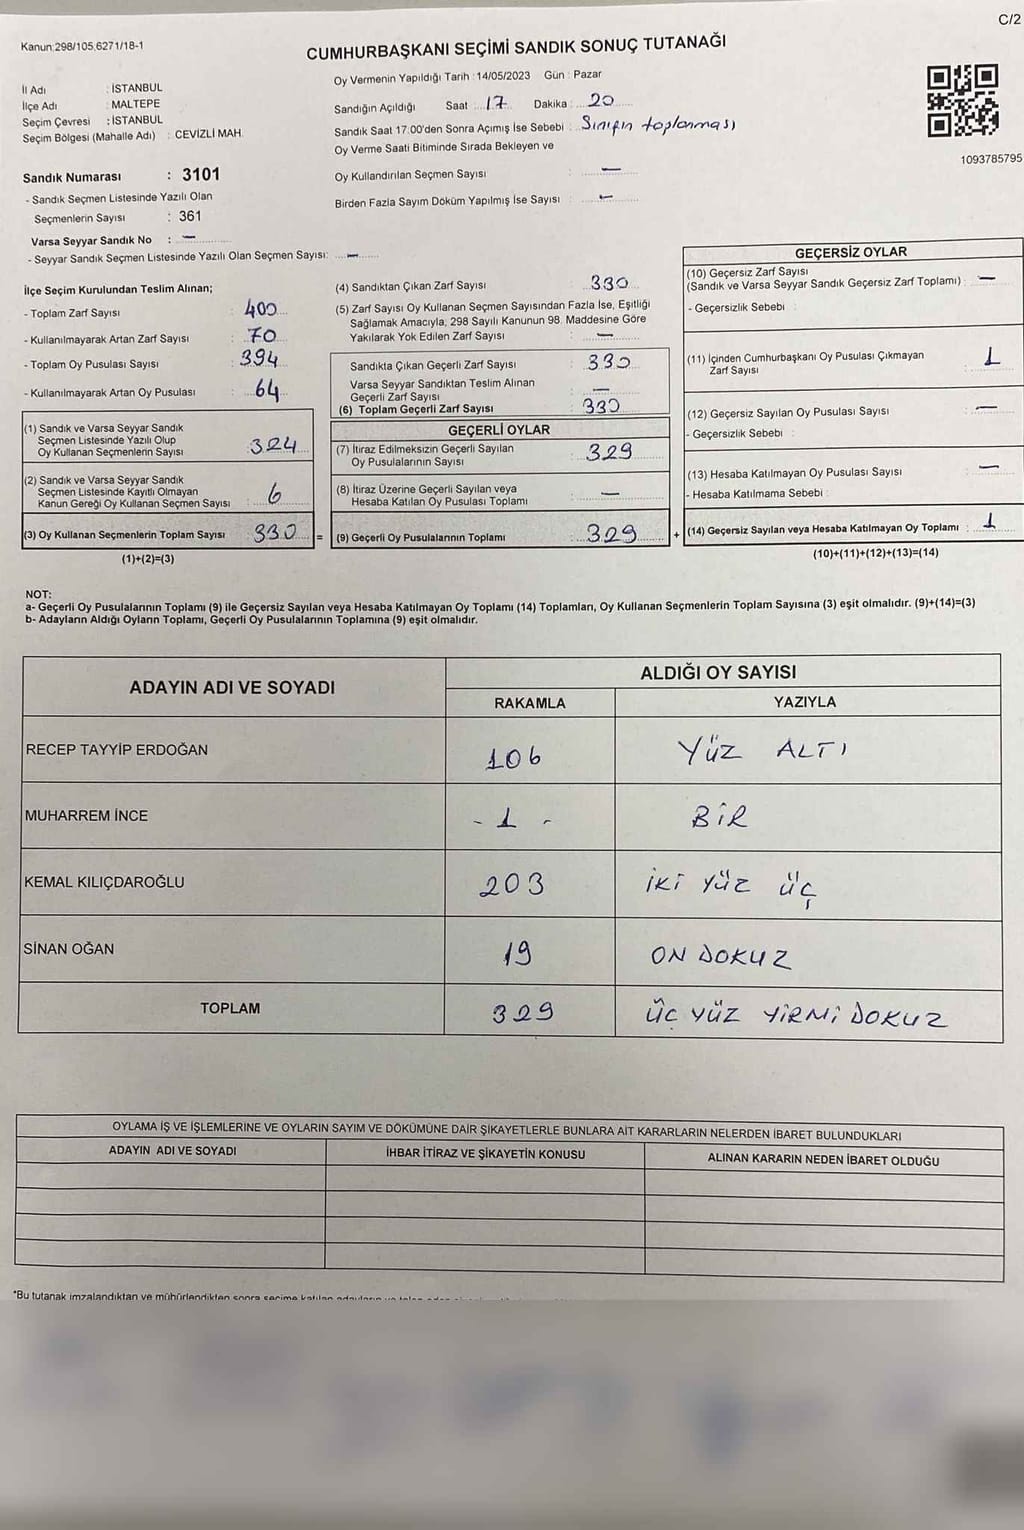 C/2
Kanun:298/105,6271/18-1
CUMHURBAŞKANI SEÇİMİ SANDIK SONUÇ TUTANAĞI
İl Adı : İSTANBUL
İlçe Adı : MALTEPE
Seçim Çevresi : İSTANBUL
Seçim Bölgesi (Mahalle Adı) : CEVİZLİ MAH.
Sandık Numarası : 3101
- Sandık Seçmen Listesinde Yazılı Olan
Seçmenlerin Sayısı : 361
Varsa Seyyar Sandık No : —
- Seyyar Sandık Seçmen Listesinde Yazılı Olan Seçmen Sayısı: —
Oy Vermenin Yapıldığı Tarih : 14/05/2023 Gün : Pazar
Sandığın Açıldığı Saat 17 Dakika : 20
Sandık Saat 17:00'den Sonra Açımış İse Sebebi : Sınıfın toplanması
Oy Verme Saati Bitiminde Sırada Bekleyen ve
Oy Kullandırılan Seçmen Sayısı : —
Birden Fazla Sayım Döküm Yapılmış İse Sayısı : —
1093785795
İlçe Seçim Kurulundan Teslim Alınan;
- Toplam Zarf Sayısı : 400
- Kullanılmayarak Artan Zarf Sayısı : 70
- Toplam Oy Pusulası Sayısı : 394
- Kullanılmayarak Artan Oy Pusulası : 64
(1) Sandık ve Varsa Seyyar Sandık
Seçmen Listesinde Yazılı Olup
Oy Kullanan Seçmenlerin Sayısı : 324
(2) Sandık ve Varsa Seyyar Sandık
Seçmen Listesinde Kayıtlı Olmayan
Kanun Gereği Oy Kullanan Seçmen Sayısı : 6
(3) Oy Kullanan Seçmenlerin Toplam Sayısı : 330 =
(1)+(2)=(3)
(4) Sandıktan Çıkan Zarf Sayısı : 330
(5) Zarf Sayısı Oy Kullanan Seçmen Sayısından Fazla İse, Eşitliği
Sağlamak Amacıyla, 298 Sayılı Kanunun 98. Maddesine Göre
Yakılarak Yok Edilen Zarf Sayısı : —
Sandıkta Çıkan Geçerli Zarf Sayısı : 330
Varsa Seyyar Sandıktan Teslim Alınan
Geçerli Zarf Sayısı : —
(6) Toplam Geçerli Zarf Sayısı : 330
GEÇERLİ OYLAR
(7) İtiraz Edilmeksizin Geçerli Sayılan
Oy Pusulalarının Sayısı : 329
(8) İtiraz Üzerine Geçerli Sayılan veya
Hesaba Katılan Oy Pusulası Toplamı : —
(9) Geçerli Oy Pusulalarının Toplamı : 329 +
GEÇERSİZ OYLAR
(10) Geçersiz Zarf Sayısı
(Sandık ve Varsa Seyyar Sandık Geçersiz Zarf Toplamı) : —
- Geçersizlik Sebebi :
(11) İçinden Cumhurbaşkanı Oy Pusulası Çıkmayan
Zarf Sayısı : 1
(12) Geçersiz Sayılan Oy Pusulası Sayısı : —
- Geçersizlik Sebebi :
(13) Hesaba Katılmayan Oy Pusulası Sayısı : —
- Hesaba Katılmama Sebebi :
(14) Geçersiz Sayılan veya Hesaba Katılmayan Oy Toplamı : 1
(10)+(11)+(12)+(13)=(14)
NOT:
a- Geçerli Oy Pusulalarının Toplamı (9) ile Geçersiz Sayılan veya Hesaba Katılmayan Oy Toplamı (14) Toplamları, Oy Kullanan Seçmenlerin Toplam Sayısına (3) eşit olmalıdır. (9)+(14)=(3)
b- Adayların Aldığı Oyların Toplamı, Geçerli Oy Pusulalarının Toplamına (9) eşit olmalıdır.
ADAYIN ADI VE SOYADI ALDIĞI OY SAYISI
RAKAMLA YAZIYLA
RECEP TAYYİP ERDOĞAN 106 YÜZ ALTI
MUHARREM İNCE - 1 - BİR
KEMAL KILIÇDAROĞLU 203 İKİ YÜZ ÜÇ
SİNAN OĞAN 19 ON DOKUZ
TOPLAM 329 ÜÇ YÜZ YİRMİ DOKUZ
OYLAMA İŞ VE İŞLEMLERİNE VE OYLARIN SAYIM VE DÖKÜMÜNE DAİR ŞİKAYETLERLE BUNLARA AİT KARARLARIN NELERDEN İBARET BULUNDUKLARI
ADAYIN ADI VE SOYADI İHBAR İTİRAZ VE ŞİKAYETİN KONUSU ALINAN KARARIN NEDEN İBARET OLDUĞU
*Bu tutanak imzalandıktan ve mühürlendikten sonra seçime katılan